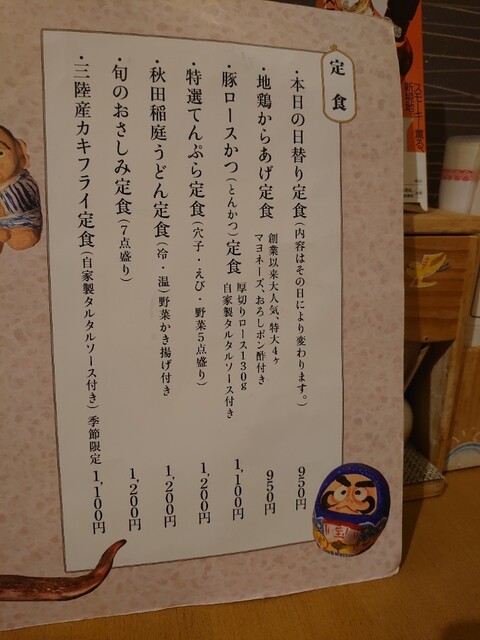 定食
・本日の日替り定食(内容はその日により変わります。) 950円
・地鶏からあげ定食 創業以来大人気、特大4ヶ
マヨネーズ、おろしポン酢付き 950円
・豚ロースかつ(とんかつ)定食 厚切りロース130g
自家製タルタルソース付き 1,100円
・特選てんぷら定食(穴子・えび・野菜5点盛り) 1,200円
・秋田稲庭うどん定食(冷・温)野菜かき揚げ付き 1,200円
・旬のおさしみ定食(7点盛り) 1,200円
・三陸産カキフライ定食(自家製タルタルソース付き)季節限定 1,100円
スモーキー薫る、
新感覚